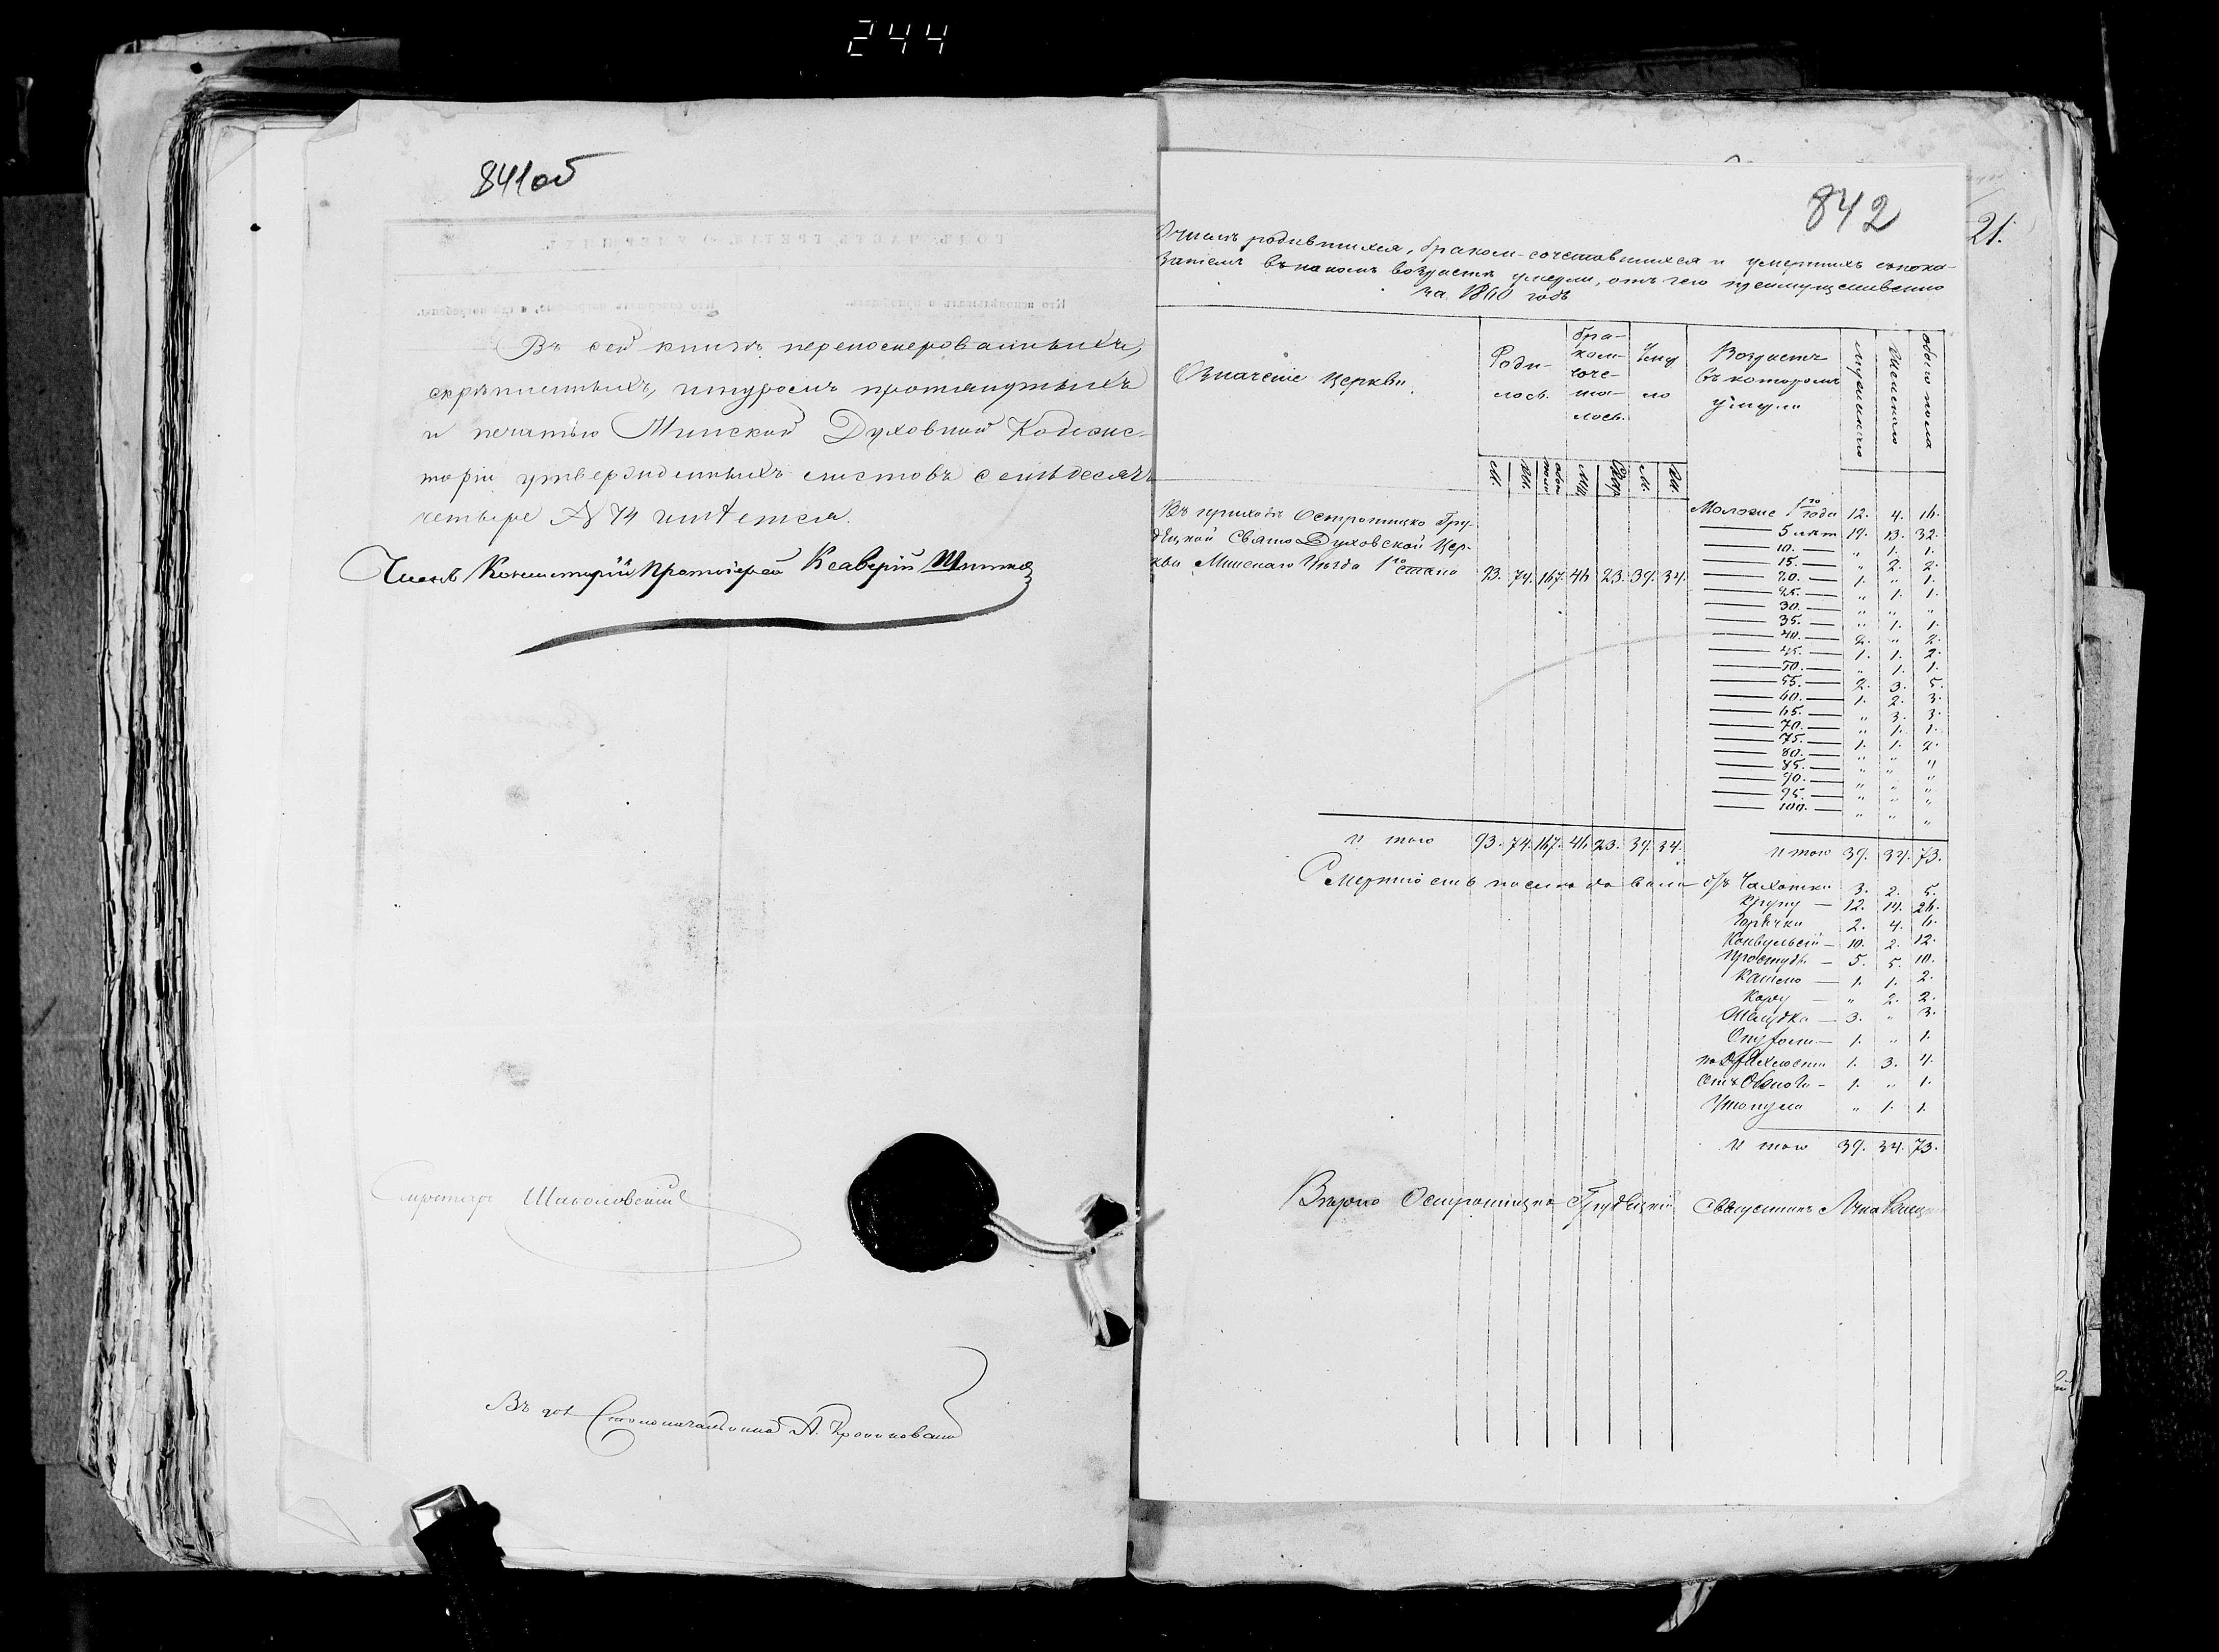 244
841об
Въ сей книгѣ перенумерованныхъ,
скрѣпленныхъ, шнуромъ протянутыхъ
и печатью Минской Духовной Консис-
торіи утвержденныхъ листовъ семьдесятъ
четыре № 74 имѣется.
Членъ Консисторіи Протоіерей Ксаверій
Секретарь
Столоначальника А.
842
21.
О числѣ родившихся, бракомъ-сочетавшихся и умершихъ съ пока-
заніемъ въ какомъ возрастѣ умерли, отъ чего преимущественно
за 1860 годъ
Означеніе Церкви.
Роди-
лось.
Бра-
комъ
соче-
та-
лось.
Умер
ло
Возрастъ
въ которомъ
умерли
мужескаго
Женскаго
обоего пола
Въ приходѣ Остротицко Гру-
Свято Духовской Цер-
кви Минскаго Уѣзда 1го стана 93. 74. 167. 46 23. 39. 34.
Моложе 1го года 12. 4. 16.
5 лѣтъ 19. 13. 32.
10. „ 1. 1.
15. „ 2. 2.
20. 1. „ 1.
25. „ 1. 1.
30. „ „ „
35. „ 1. 1.
40. 2. „ 2.
45. 1. 1. 2.
50. „ 1. 1.
55. 2. 3. 5.
60. 1. 2. 3.
65. „ 3. 3.
70. „ 1. 1.
75. 1. 1. 2.
80. „ „ „
85. „ „ „
90. „ „ „
95. „ „ „
100. „ „ „
И того 93. 74. 167. 46 23. 39. 34.
И того 39. 34. 73.
Смертность послѣдовала отъ Чахотки 3. 2. 5.
Крупу 12. 14. 26.
Горячки 2. 4. 6.
Конвульсій 10. 2. 12.
Простуды 5. 5. 10.
Кашлю 1. 1. 2.
Кору „ 2. 2.
Желудка 3. „ 3.
Опухоли 1. „ 1.
1. 3. 4.
1. „ 1.
Утонула „ 1. 1.
И того 39. 34. 73.
Вѣрно